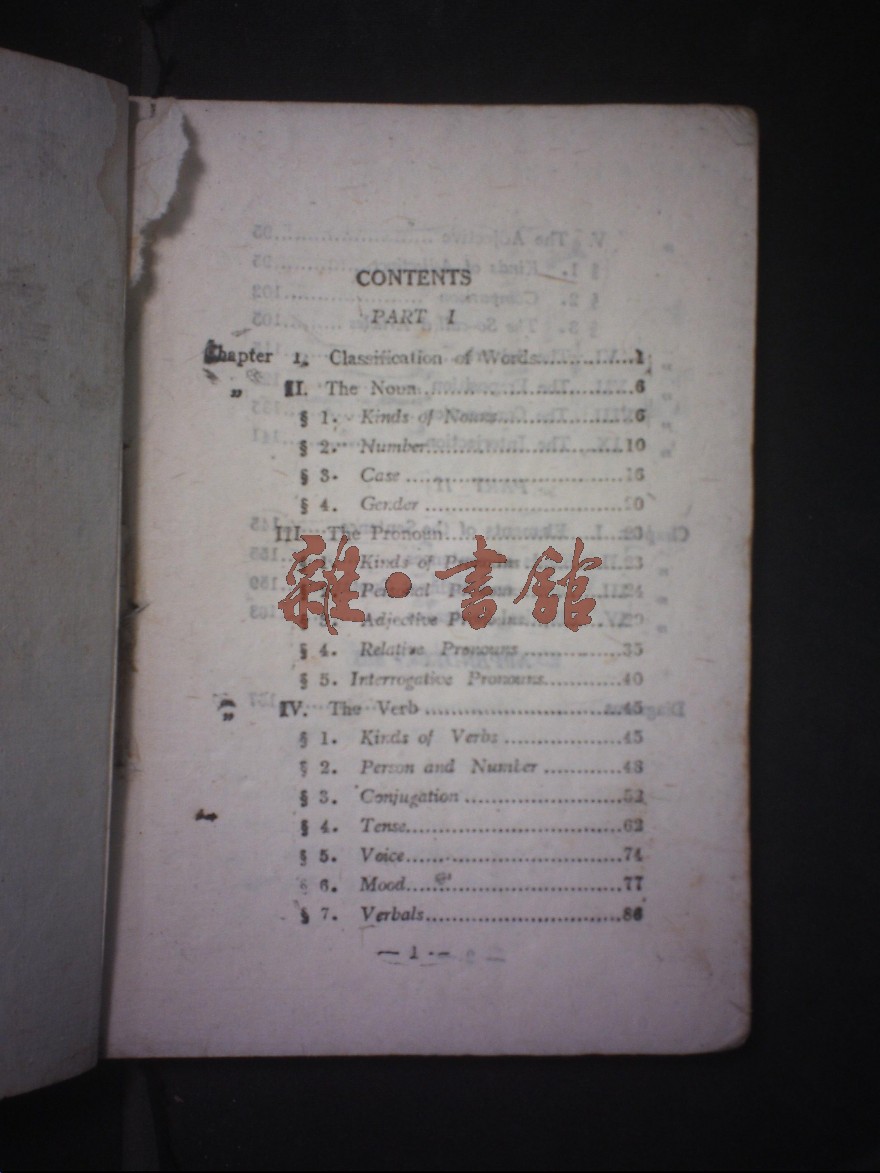 CONTENTS
PART I
Chapter I. Classification of Words...............1
„ II. The Noun..........................6
§ 1. Kinds of Nouns................6
§ 2. Number........................10
§ 3. Case..........................16
§ 4. Gender........................20
III. The Pronoun
Kinds of
雜·書館
Adjective
§ 4. Relative Pronouns.............35
§ 5. Interrogative Pronouns...........40
„ IV. The Verb.........................45
§ 1. Kinds of Verbs................45
§ 2. Person and Number............48
§ 3. Conjugation...................52
§ 4. Tense.........................62
§ 5. Voice.........................74
§ 6. Mood..........................77
§ 7. Verbals.......................86
— 1 —